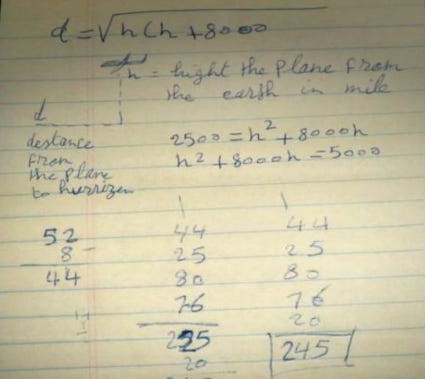 d = √h(h + 8000
h = hight the plane from
the earth in mile
d
destance
from
the plane
to hurrizen
2500 = h² + 8000h
h² + 8000h = 5000
52
8 -
44
44
25
80
76
20
245
44
25
80
76
20